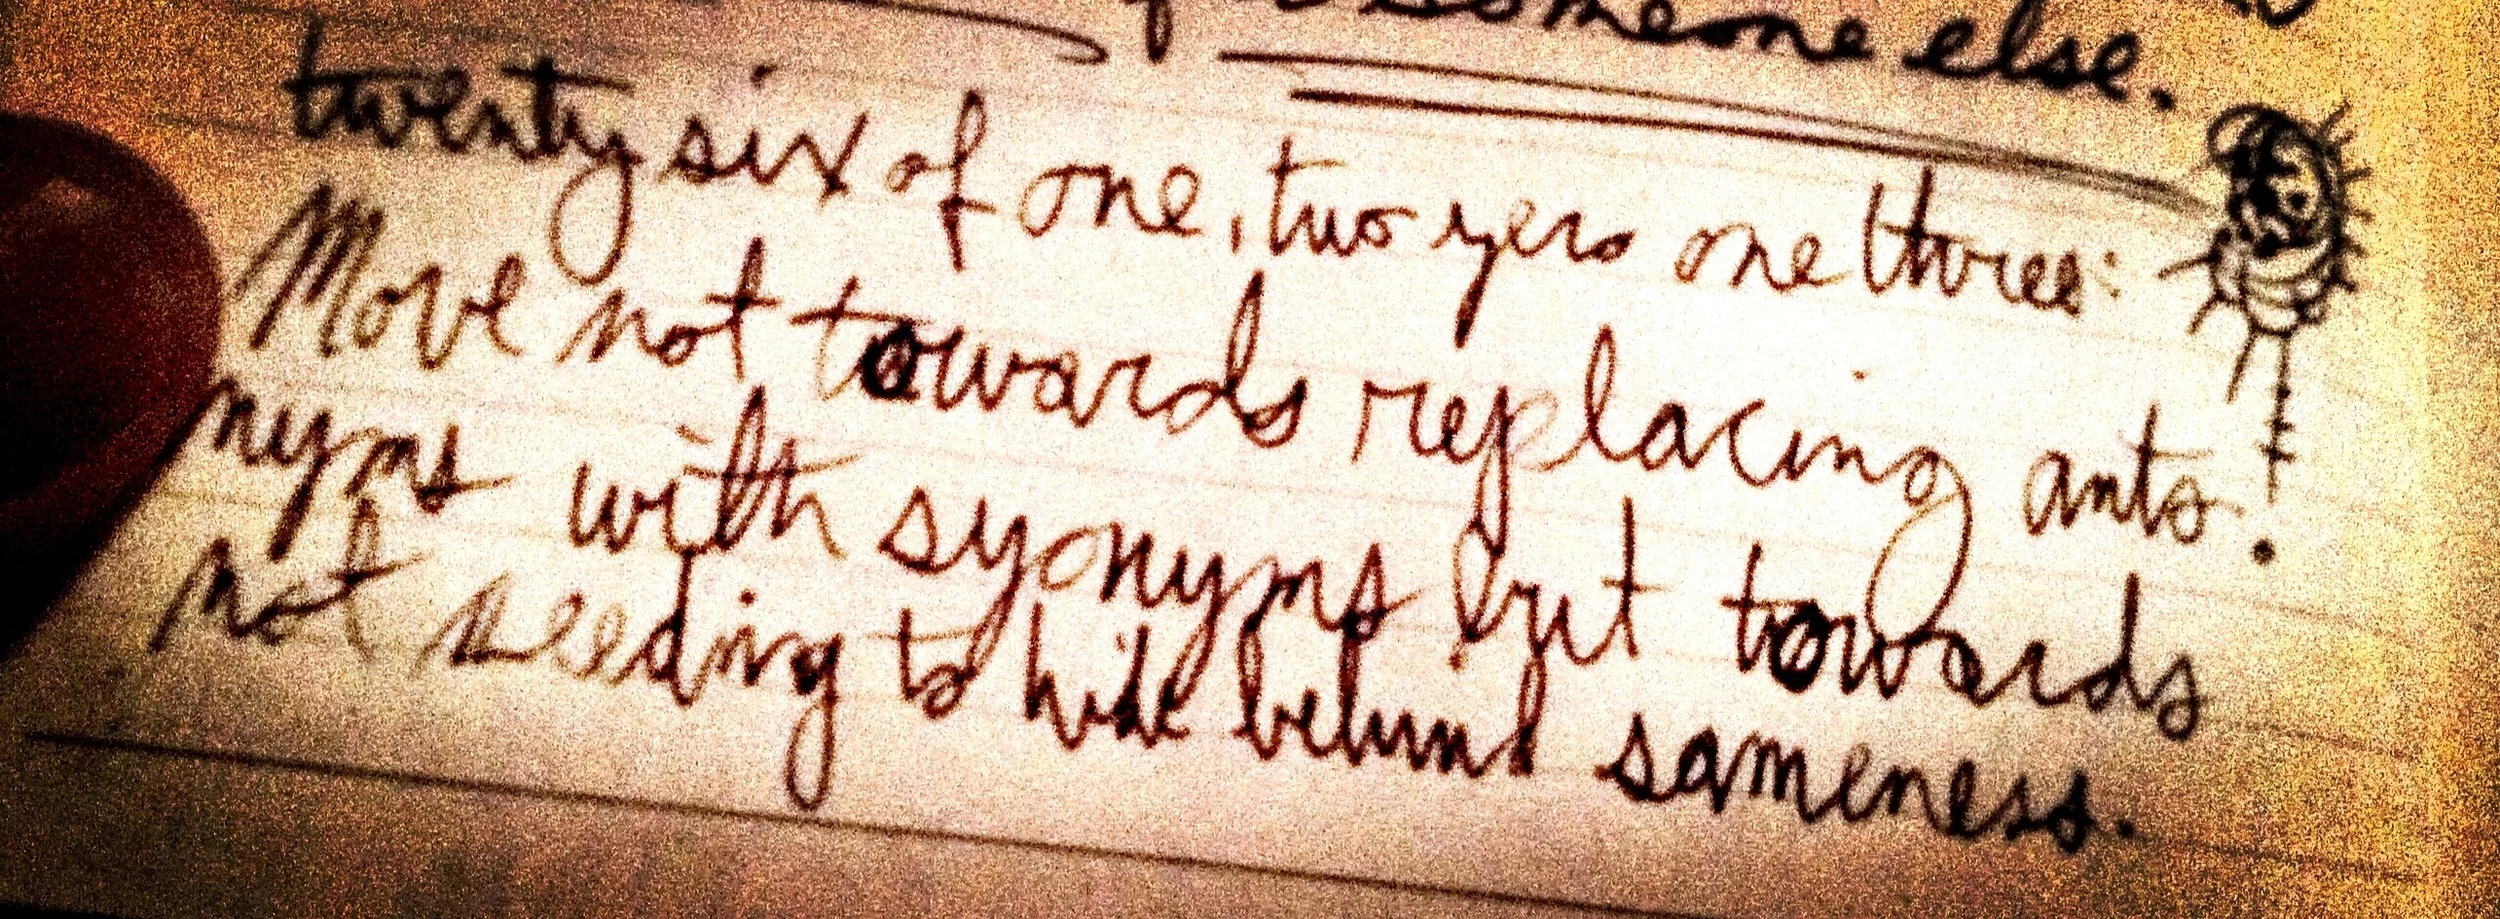 someone else.
twenty six of one, two zero one three:
Move not towards replacing anto
nyms with syonyms but towards
not needing to hide behind sameness.